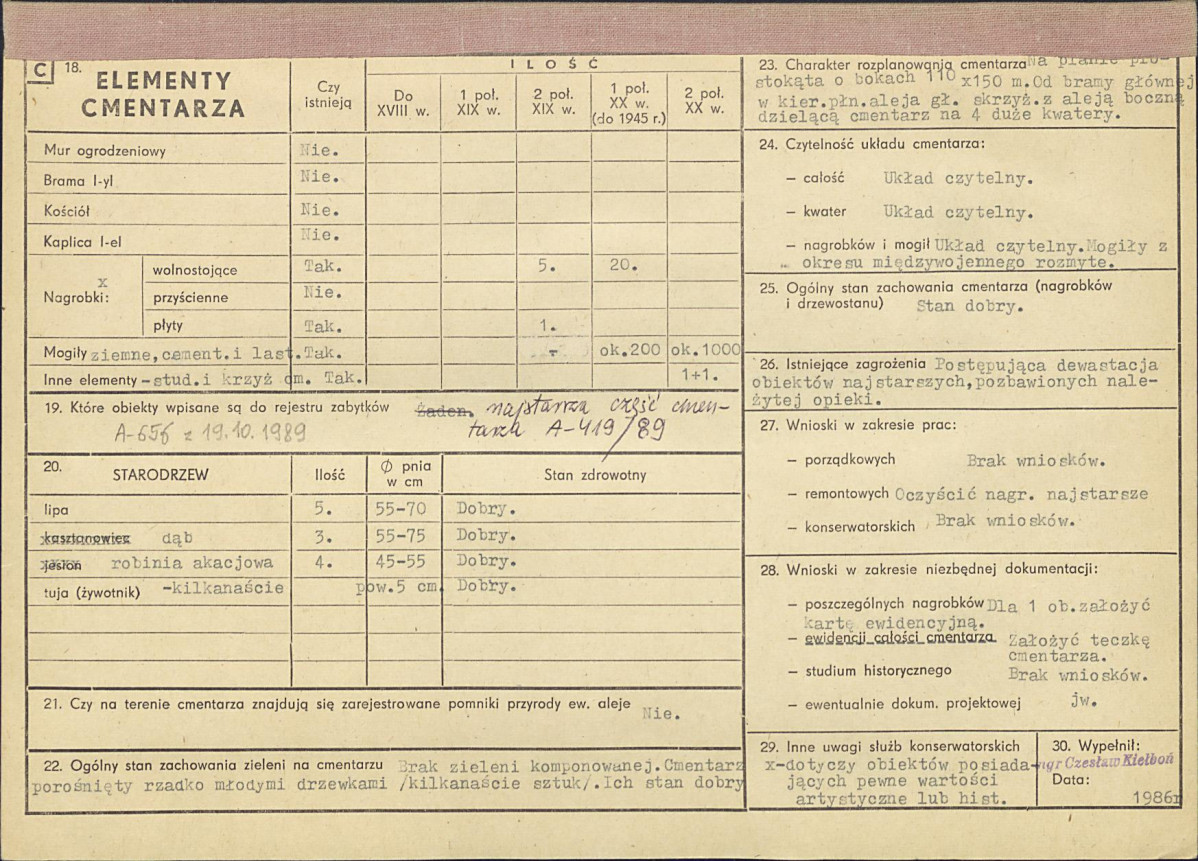 C 18. ELEMENTY CMENTARZA
Czy istnieją
ILOŚĆ
Do XVIII w.
1 poł. XIX w.
2 poł. XIX w.
1 poł. XX w. (do 1945 r.)
2 poł. XX w.
Mur ogrodzeniowy Nie.
Brama I-yl Nie.
Kościół Nie.
Kaplica I-el Nie.
x
Nagrobki:
wolnostojące Tak. 5. 20.
przyścienne Nie.
płyty Tak. 1.
Mogiły ziemne,cement.i last.Tak. ok.200 ok.1000
Inne elementy -stud.i krzyż cm. Tak. 1+1.
19. Które obiekty wpisane są do rejestru zabytków Żaden. najstarsza część cmen-
tarza A-419/89
A-656 z 19.10.1989
20. STARODRZEW
Ilość
Ø pnia w cm
Stan zdrowotny
lipa 5. 55-70 Dobry.
kasztanowiec dąb 3. 55-75 Dobry.
jesion robinia akacjowa 4. 45-55 Dobry.
tuja (żywotnik) -kilkanaście pow.5 cm. Dobry.
21. Czy na terenie cmentarza znajdują się zarejestrowane pomniki przyrody ew. aleje Nie.
22. Ogólny stan zachowania zieleni na cmentarzu Brak zieleni komponowanej.Cmentarz
porośnięty rzadko młodymi drzewkami /kilkanaście sztuk/.Ich stan dobry
23. Charakter rozplanowania cmentarza Na planie pro-
stokąta o bokach 110 x150 m.Od bramy głównej
w kier.płn.aleja gł. skrzyż.z aleją boczną
dzielącą cmentarz na 4 duże kwatery.
24. Czytelność układu cmentarza:
– całość Układ czytelny.
– kwater Układ czytelny.
– nagrobków i mogił Układ czytelny.Mogiły z
okresu międzywojennego rozmyte.
25. Ogólny stan zachowania cmentarza (nagrobków
i drzewostanu) Stan dobry.
26. Istniejące zagrożenia Postępująca dewastacja
obiektów najstarszych,pozbawionych nale-
żytej opieki.
27. Wnioski w zakresie prac:
– porządkowych Brak wniosków.
– remontowych Oczyścić nagr. najstarsze
– konserwatorskich Brak wniosków.
28. Wnioski w zakresie niezbędnej dokumentacji:
– poszczególnych nagrobków Dla 1 ob.założyć
kartę ewidencyjną.
– ewidencji całości cmentarza Założyć teczkę
cmentarza.
– studium historycznego Brak wniosków.
– ewentualnie dokum. projektowej jw.
29. Inne uwagi służb konserwatorskich
x-dotyczy obiektów posiada-
jących pewne wartości
artystyczne lub hist.
30. Wypełnił:
mgr Czesław Kiełboń
Data:
1986r